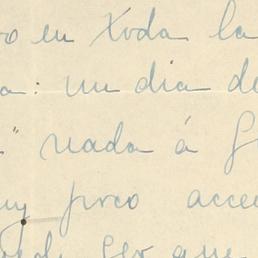 o en toda la
a: un dia de
" nada á G
uy poco acce
ser que